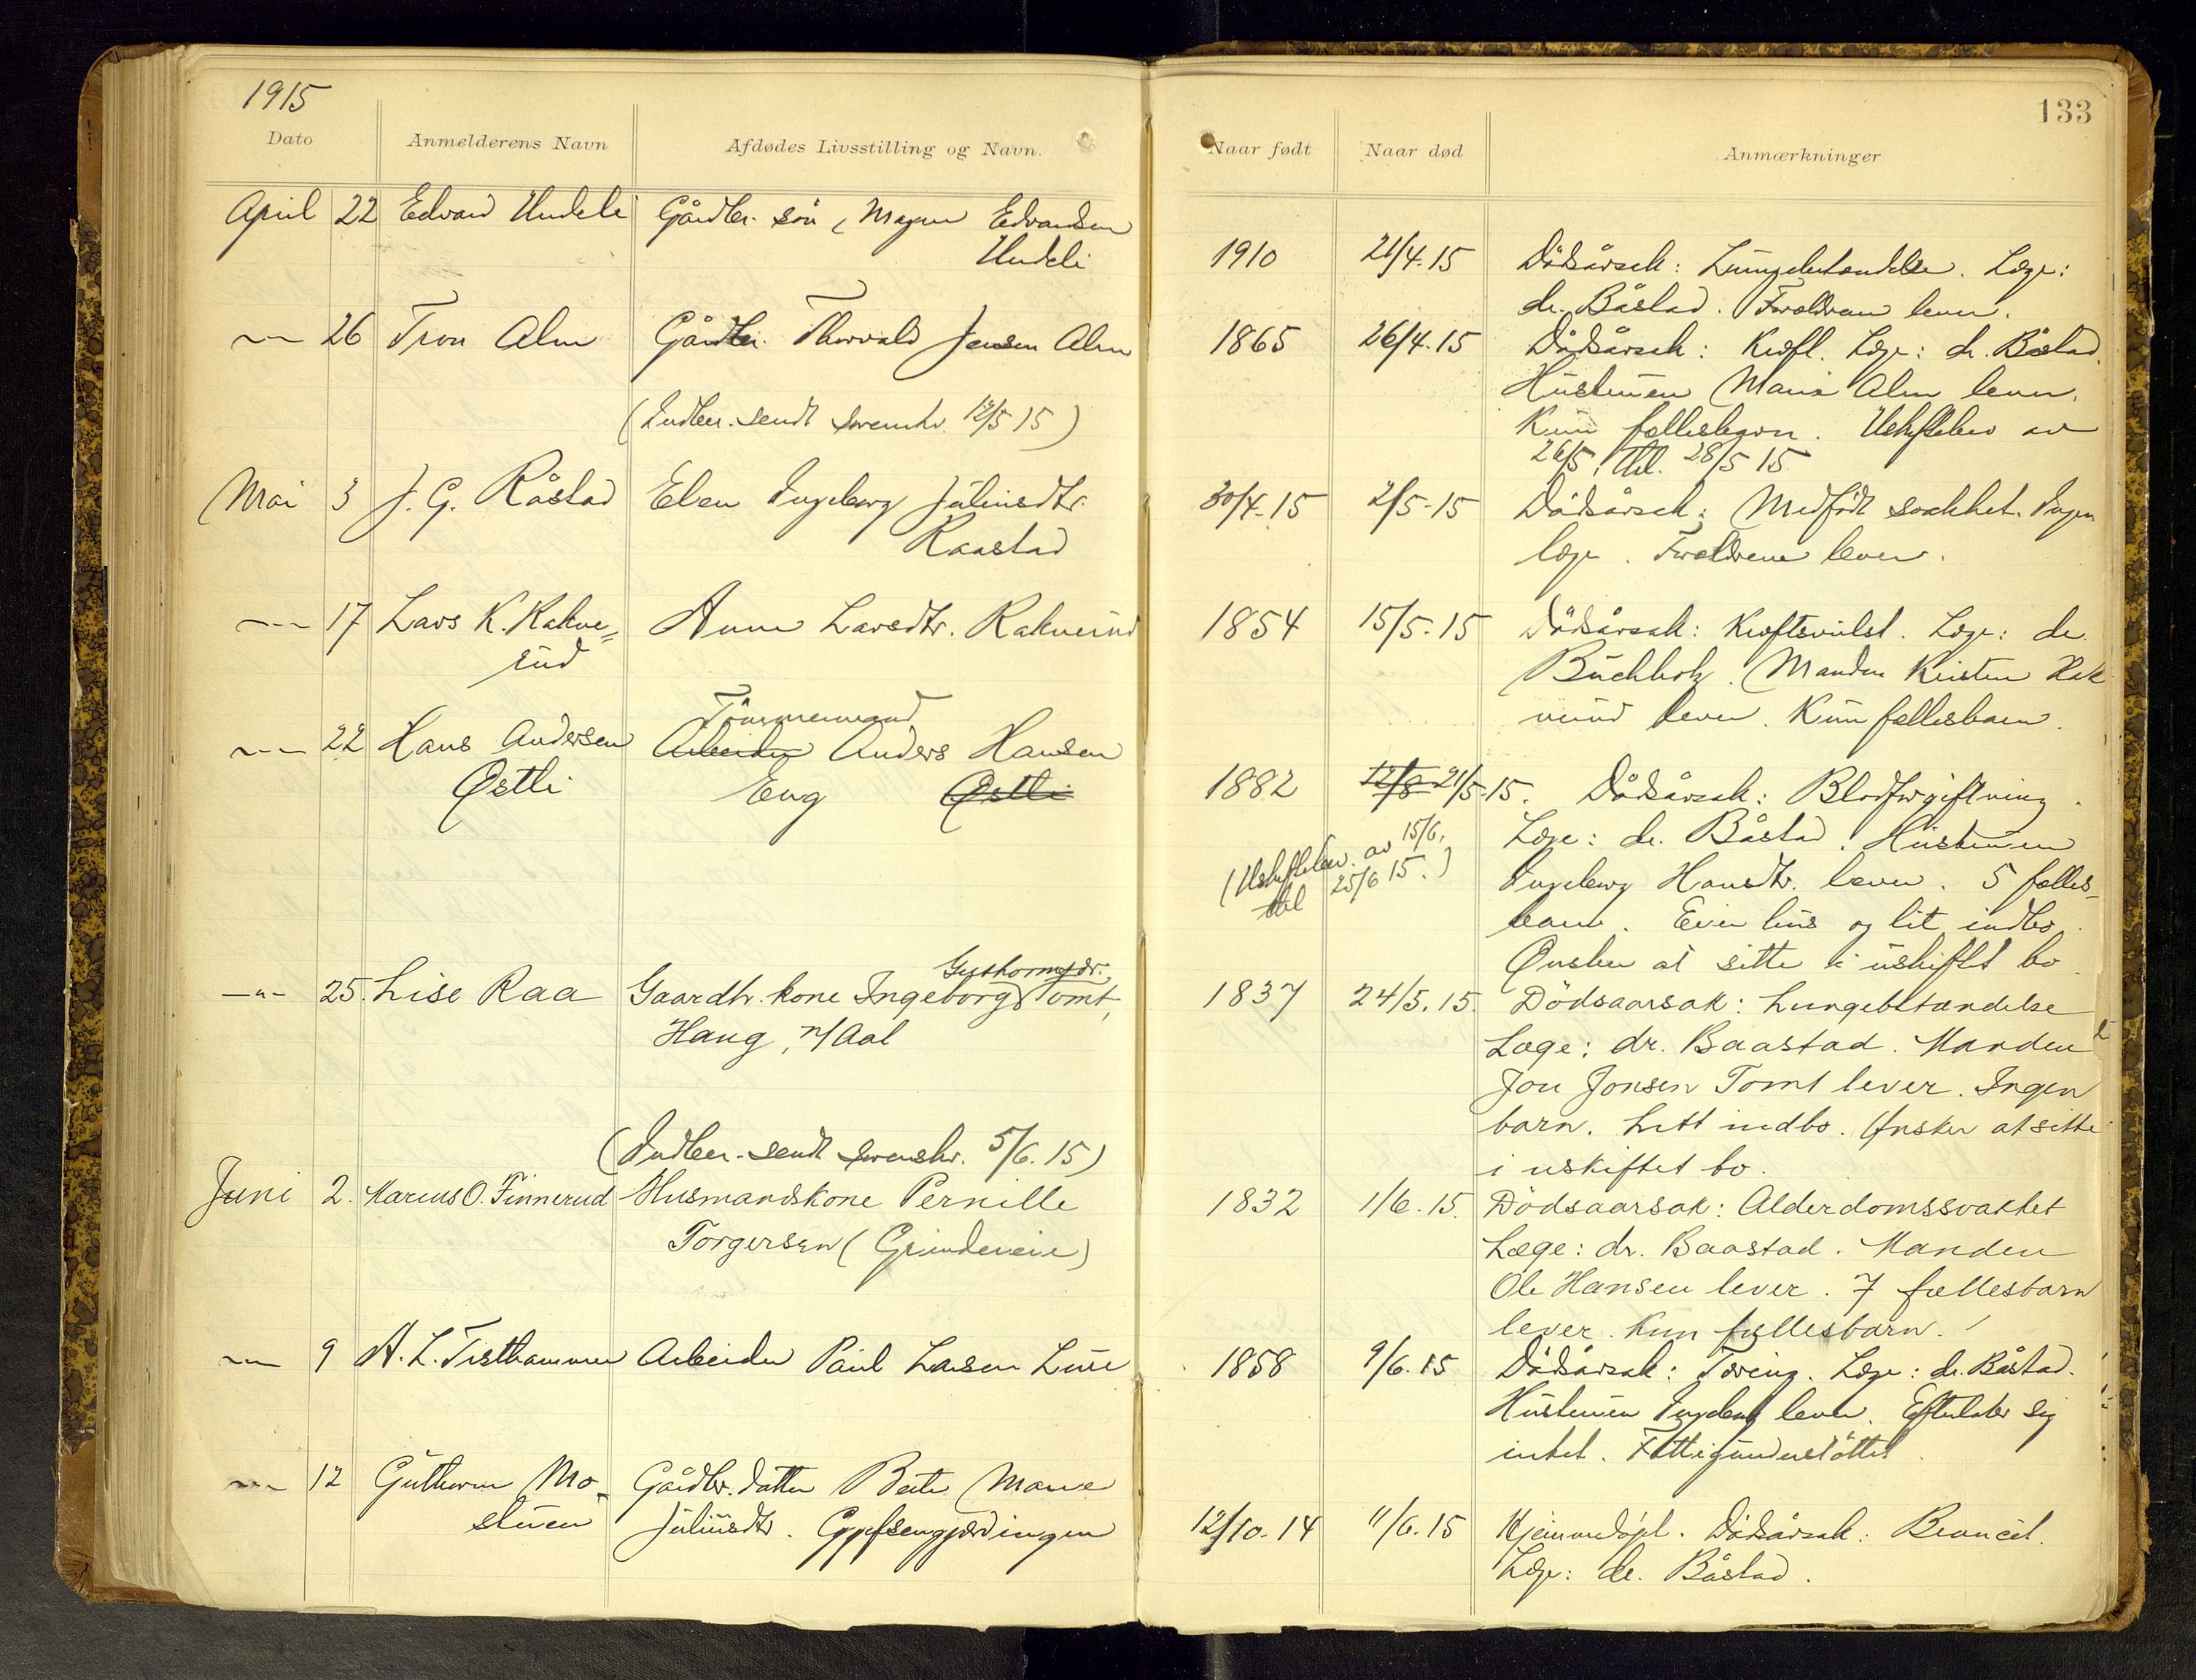 1915
133
Dato Anmelderens Navn Afdødes Livsstilling og Navn. Naar født Naar død Anmærkninger
April 22 Edvard Undeli Gårdbr. sön, Magnus Edvardsen
Undeli 1910 21/4.15 Dödsårsak: Lungebetændelse. Læge:
dr. Båstad. Forældrene lever.
-"- 26 Tron Alm Gårdbr. Thorvald Jensen Alm 1865 26/4.15 Dödsårsak: Kræft. Læge: dr. Båstad.
Hustruen Maria Alm lever.
(Indber. sendt sorenskr. 12/5 15) Kun fællesbarn. Uskiftebev. av
26/5, thl. 28/5 15
Mai 3 J. G. Råstad Elen Ingeborg Juliusdtr. 30/4-15 2/5-15 Dödsårsak: Medfödt svakhet. Ingen
Raastad læge. Forældrene lever.
-"- 17 Lars K. Rakne= Anne Larsdtr. Raknerud 1854 15/5-15 Dödsårsak: Kræftsvulst. Læge: dr.
rud Buchholz. Manden Kristen Rak
nerud lever. Kun fællesbarn.
Tömmermand
-"- 22 Hans Andersen Arbeider Anders Hansen
Østli Eng Østli 1882 12/8 21/5-15. Dödsårsak: Blodforgiftning.
Læge: dr. Båstad. Hustruen
(Uskiftebev. av 15/6, Ingeborg Hansdtr. lever. 5 fælles-
thl 25/6 15.) barn. Eier hus og lit indbo.
Ønsker at sitte i uskiftet bo.
Guthormsdr.
-"- 25. Lise Raa Gaardbr. kone Ingeborg Tomt, 1837 24/5.15. Dödsaarsak: Lungebetændelse
Haug, n/Aal Læge: dr. Baastad. Manden
Jon Jonsen Tomt lever. Ingen
barn. Litt indbo. Ønsker at sitte
(Indber. sendt sorenskr. 5/6.15) i uskiftet bo.
Juni 2. Marcus O. Finnerud Husmandskone Pernille 1832 1/6.15. Dödsaarsak: Alderdomssvakhet
Torgersen (Grindereie) Læge: dr. Baastad. Manden
Ole Hansen lever. 7 fællesbarn
lever. Kun fællesbarn.
-"- 9 A. L. Tisthammer Arbeider Paul Larsen Lure 1858 9/6.15 Dödsårsak: Tæring. Læge: dr. Båstad.
Hustruen Ingeborg lever. Efterlater sig
intet. Fattigunderstöttet.
-"- 12 Guthorm Mo- Gårdbr. datter Beate Marie
stuen Juliusdtr. 12/10.14 11/6.15 Hjemmedöpt. Dödsårsak: Broncit.
Læge: dr. Båstad.